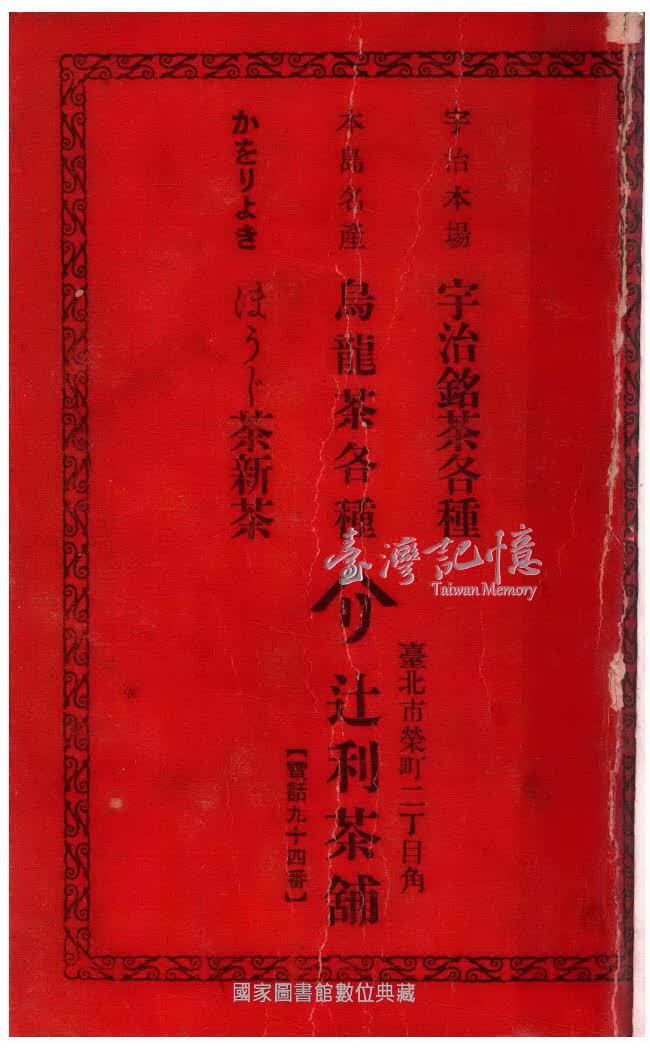 宇治本場 宇治銘茶各種
本島名產 烏龍茶各種
かをりよき ほうじ茶新茶
臺北市榮町二丁目角
リ 辻利茶舖
【電話九十四番】
臺灣記憶
Taiwan Memory
國家圖書館數位典藏